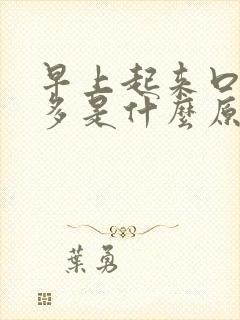 早上起來口
多是什麼原
葉勇